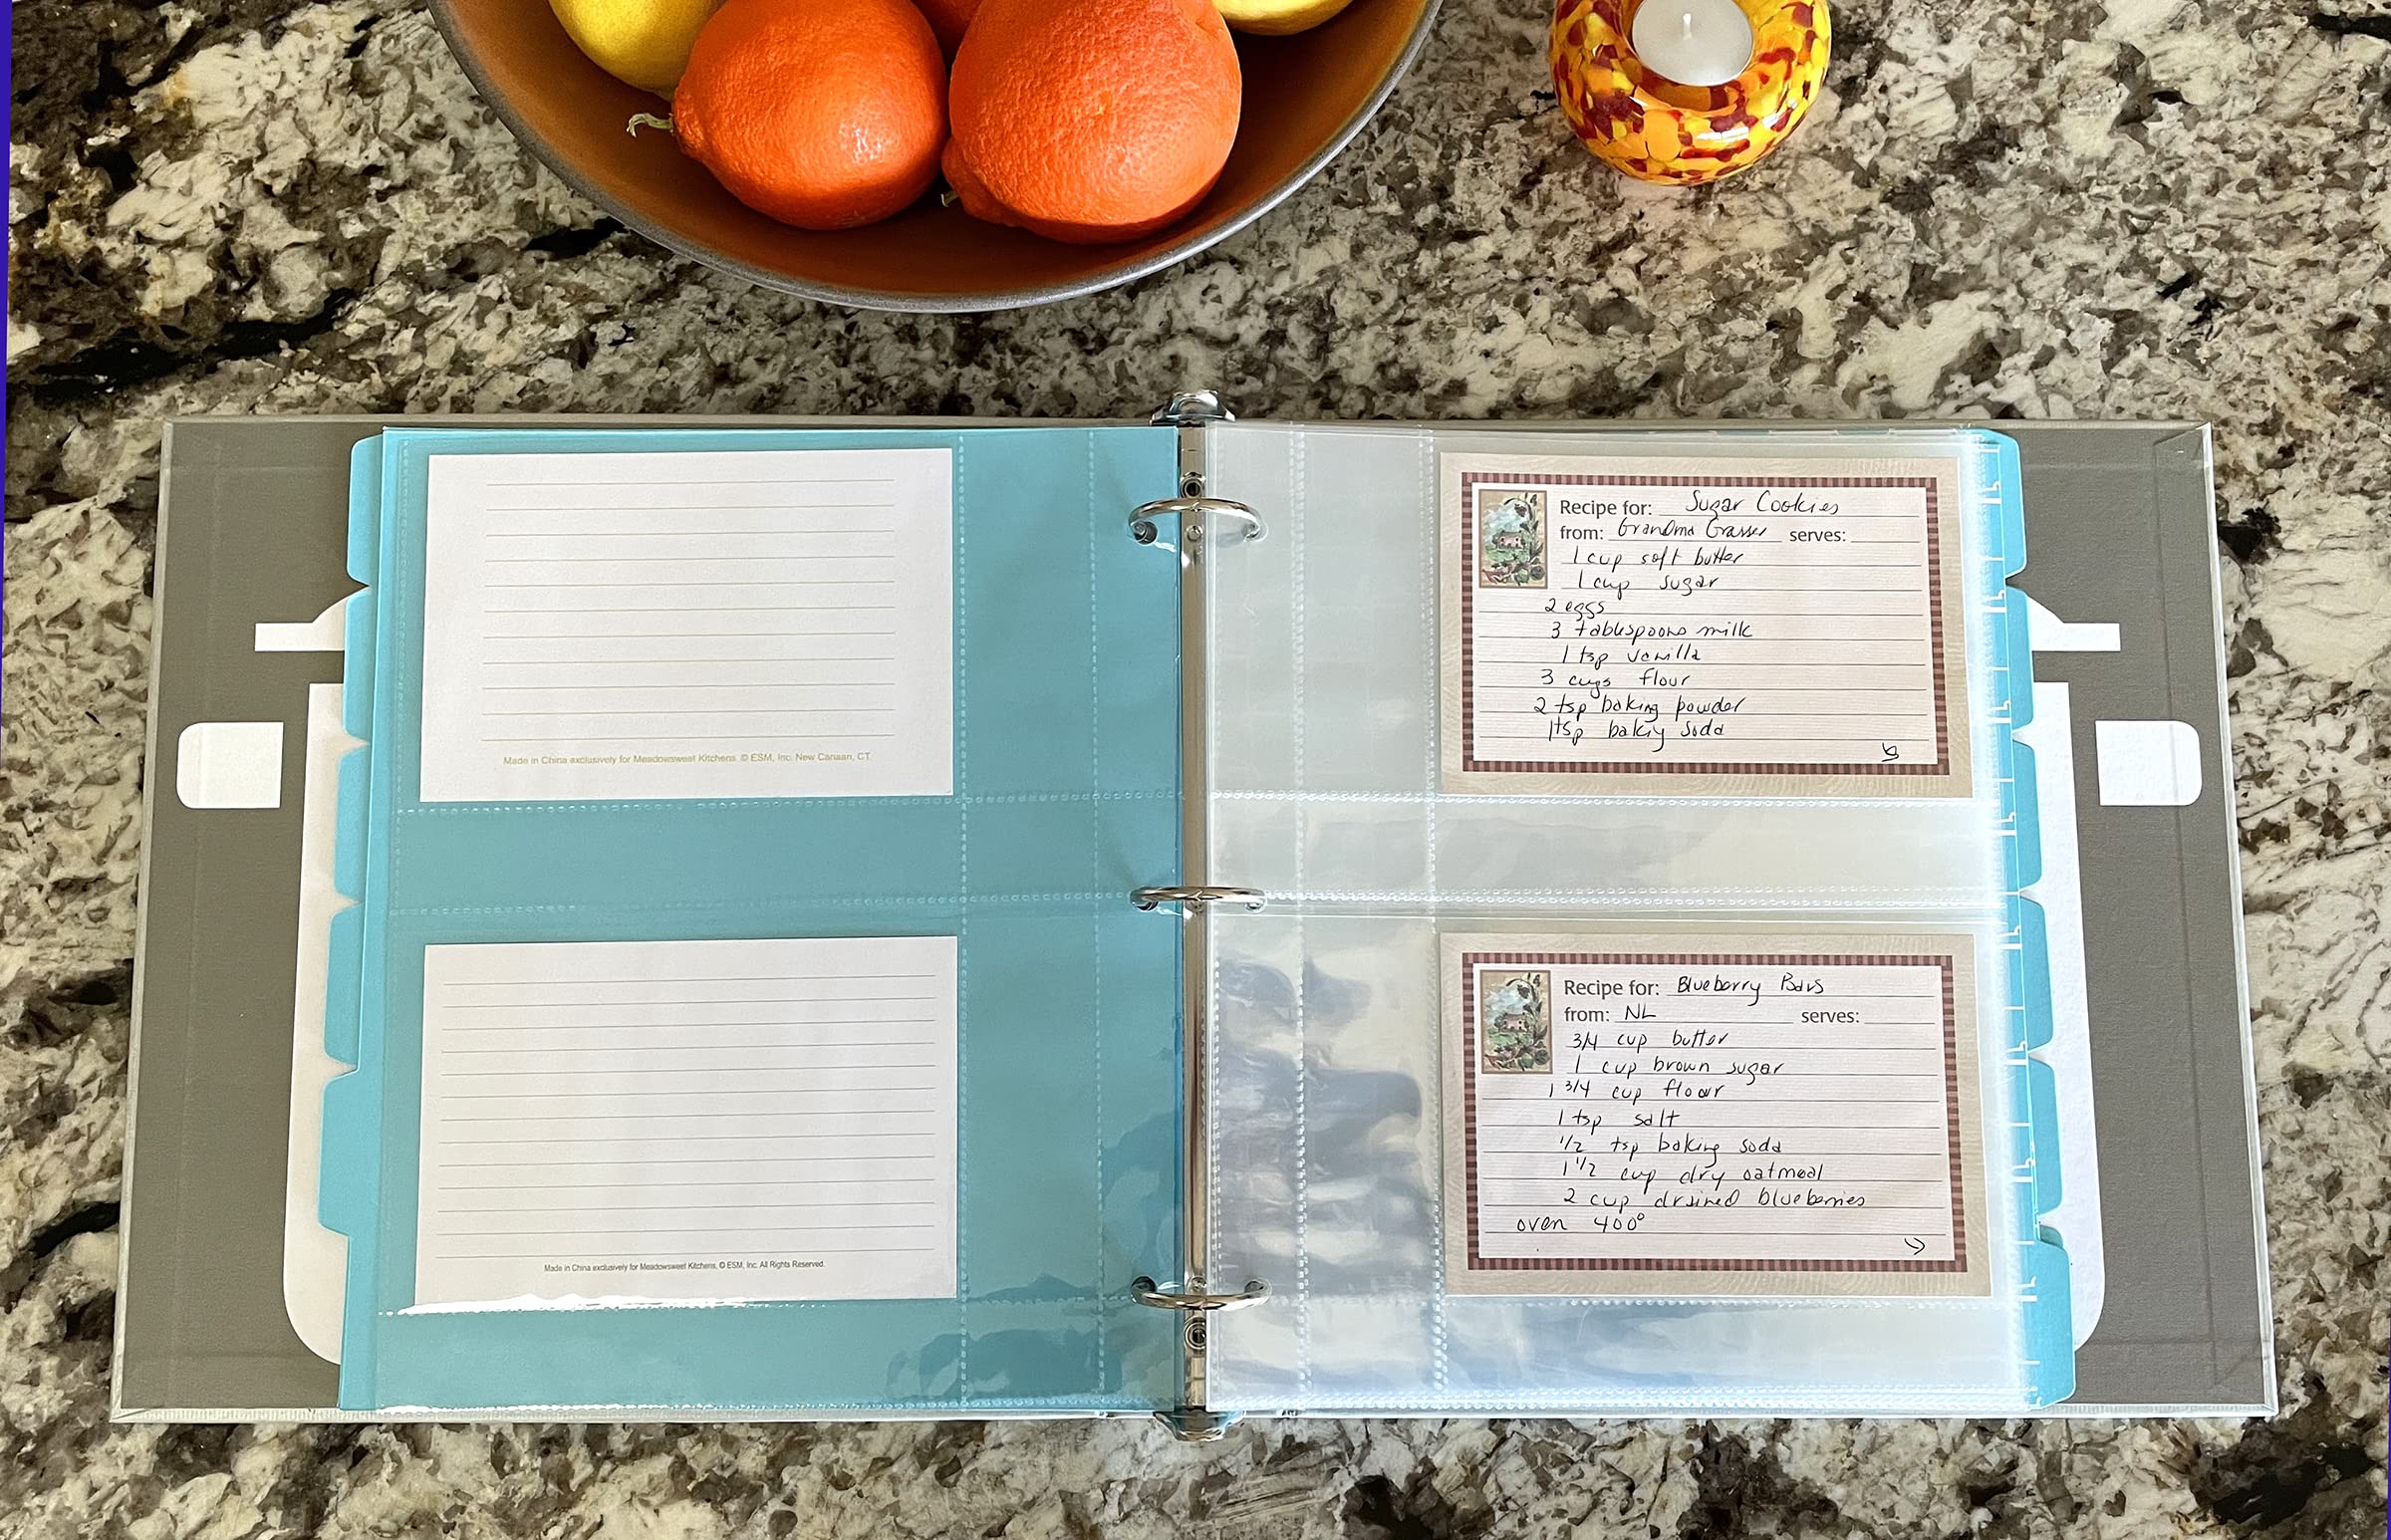 Made in China exclusively for Meadowsweet Kitchens, © ESM, Inc. New Canaan, CT
Made in China exclusively for Meadowsweet Kitchens, © ESM, Inc. All Rights Reserved.
Recipe for: Sugar Cookies
from: Grandma Grasser serves:
1 cup soft butter
1 cup sugar
2 eggs
3 tablespoons milk
1 tsp vanilla
3 cups flour
2 tsp baking powder
1 tsp baking soda
Recipe for: Blueberry Bars
from: NL serves:
3/4 cup butter
1 cup brown sugar
1 3/4 cup flour
1 tsp salt
1/2 tsp baking soda
1 1/2 cup dry oatmeal
2 cup drained blueberries
oven 400°